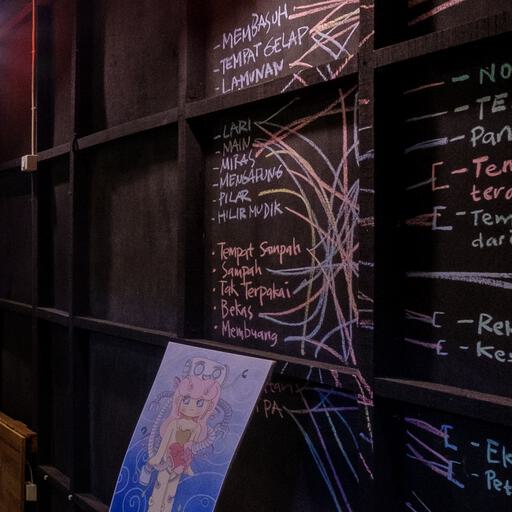 - MEMBASUH
- TEMPAT GELAP
- LAMUNAN
- LARI
- MAIN
- MIRAS
- MENGAPUNG
- PILAR
- HILIR MUDIK
• Tempat Sampah
• Sampah
• Tak Terpakai
• Bekas
• Membuang
PA
- NO
- TE
- Pan
[ - Tem
tera
[ - Tem
dari
[ - Rek
[ - Kes
[ - Ek
- Pet